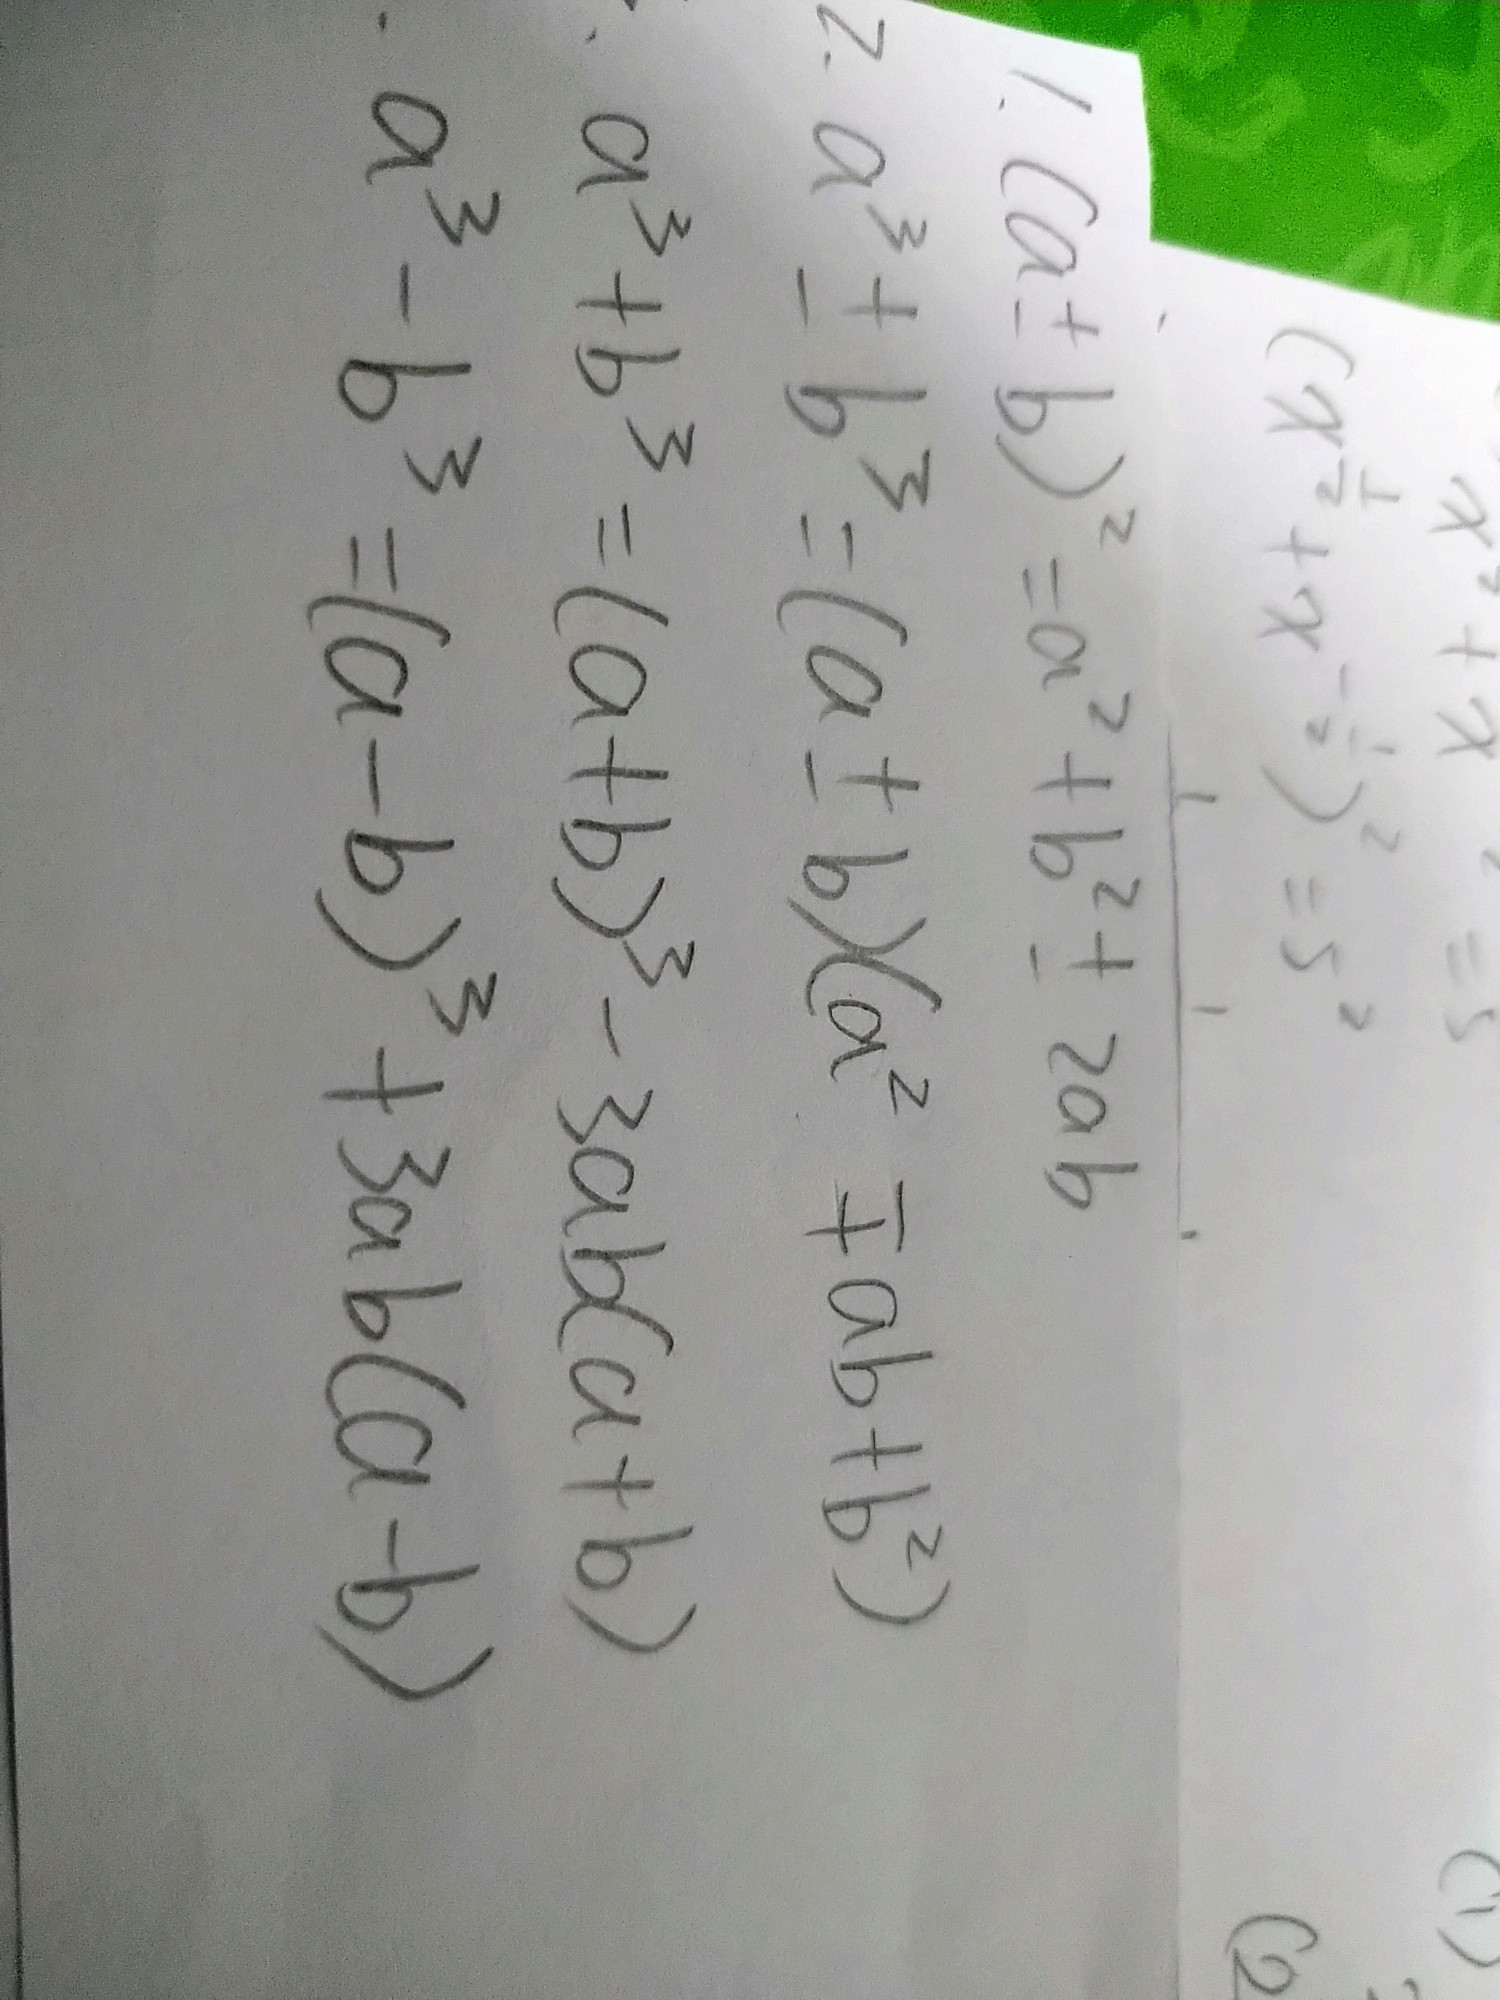 (x^{\frac{1}{2}} + x^{-\frac{1}{2}})² = 5²
1. (a ± b)² = a² + b² ± 2ab
2. a³ ± b³ = (a ± b)(a² ∓ ab + b²)
a³ + b³ = (a + b)³ - 3ab(a + b)
a³ - b³ = (a - b)³ + 3ab(a - b)